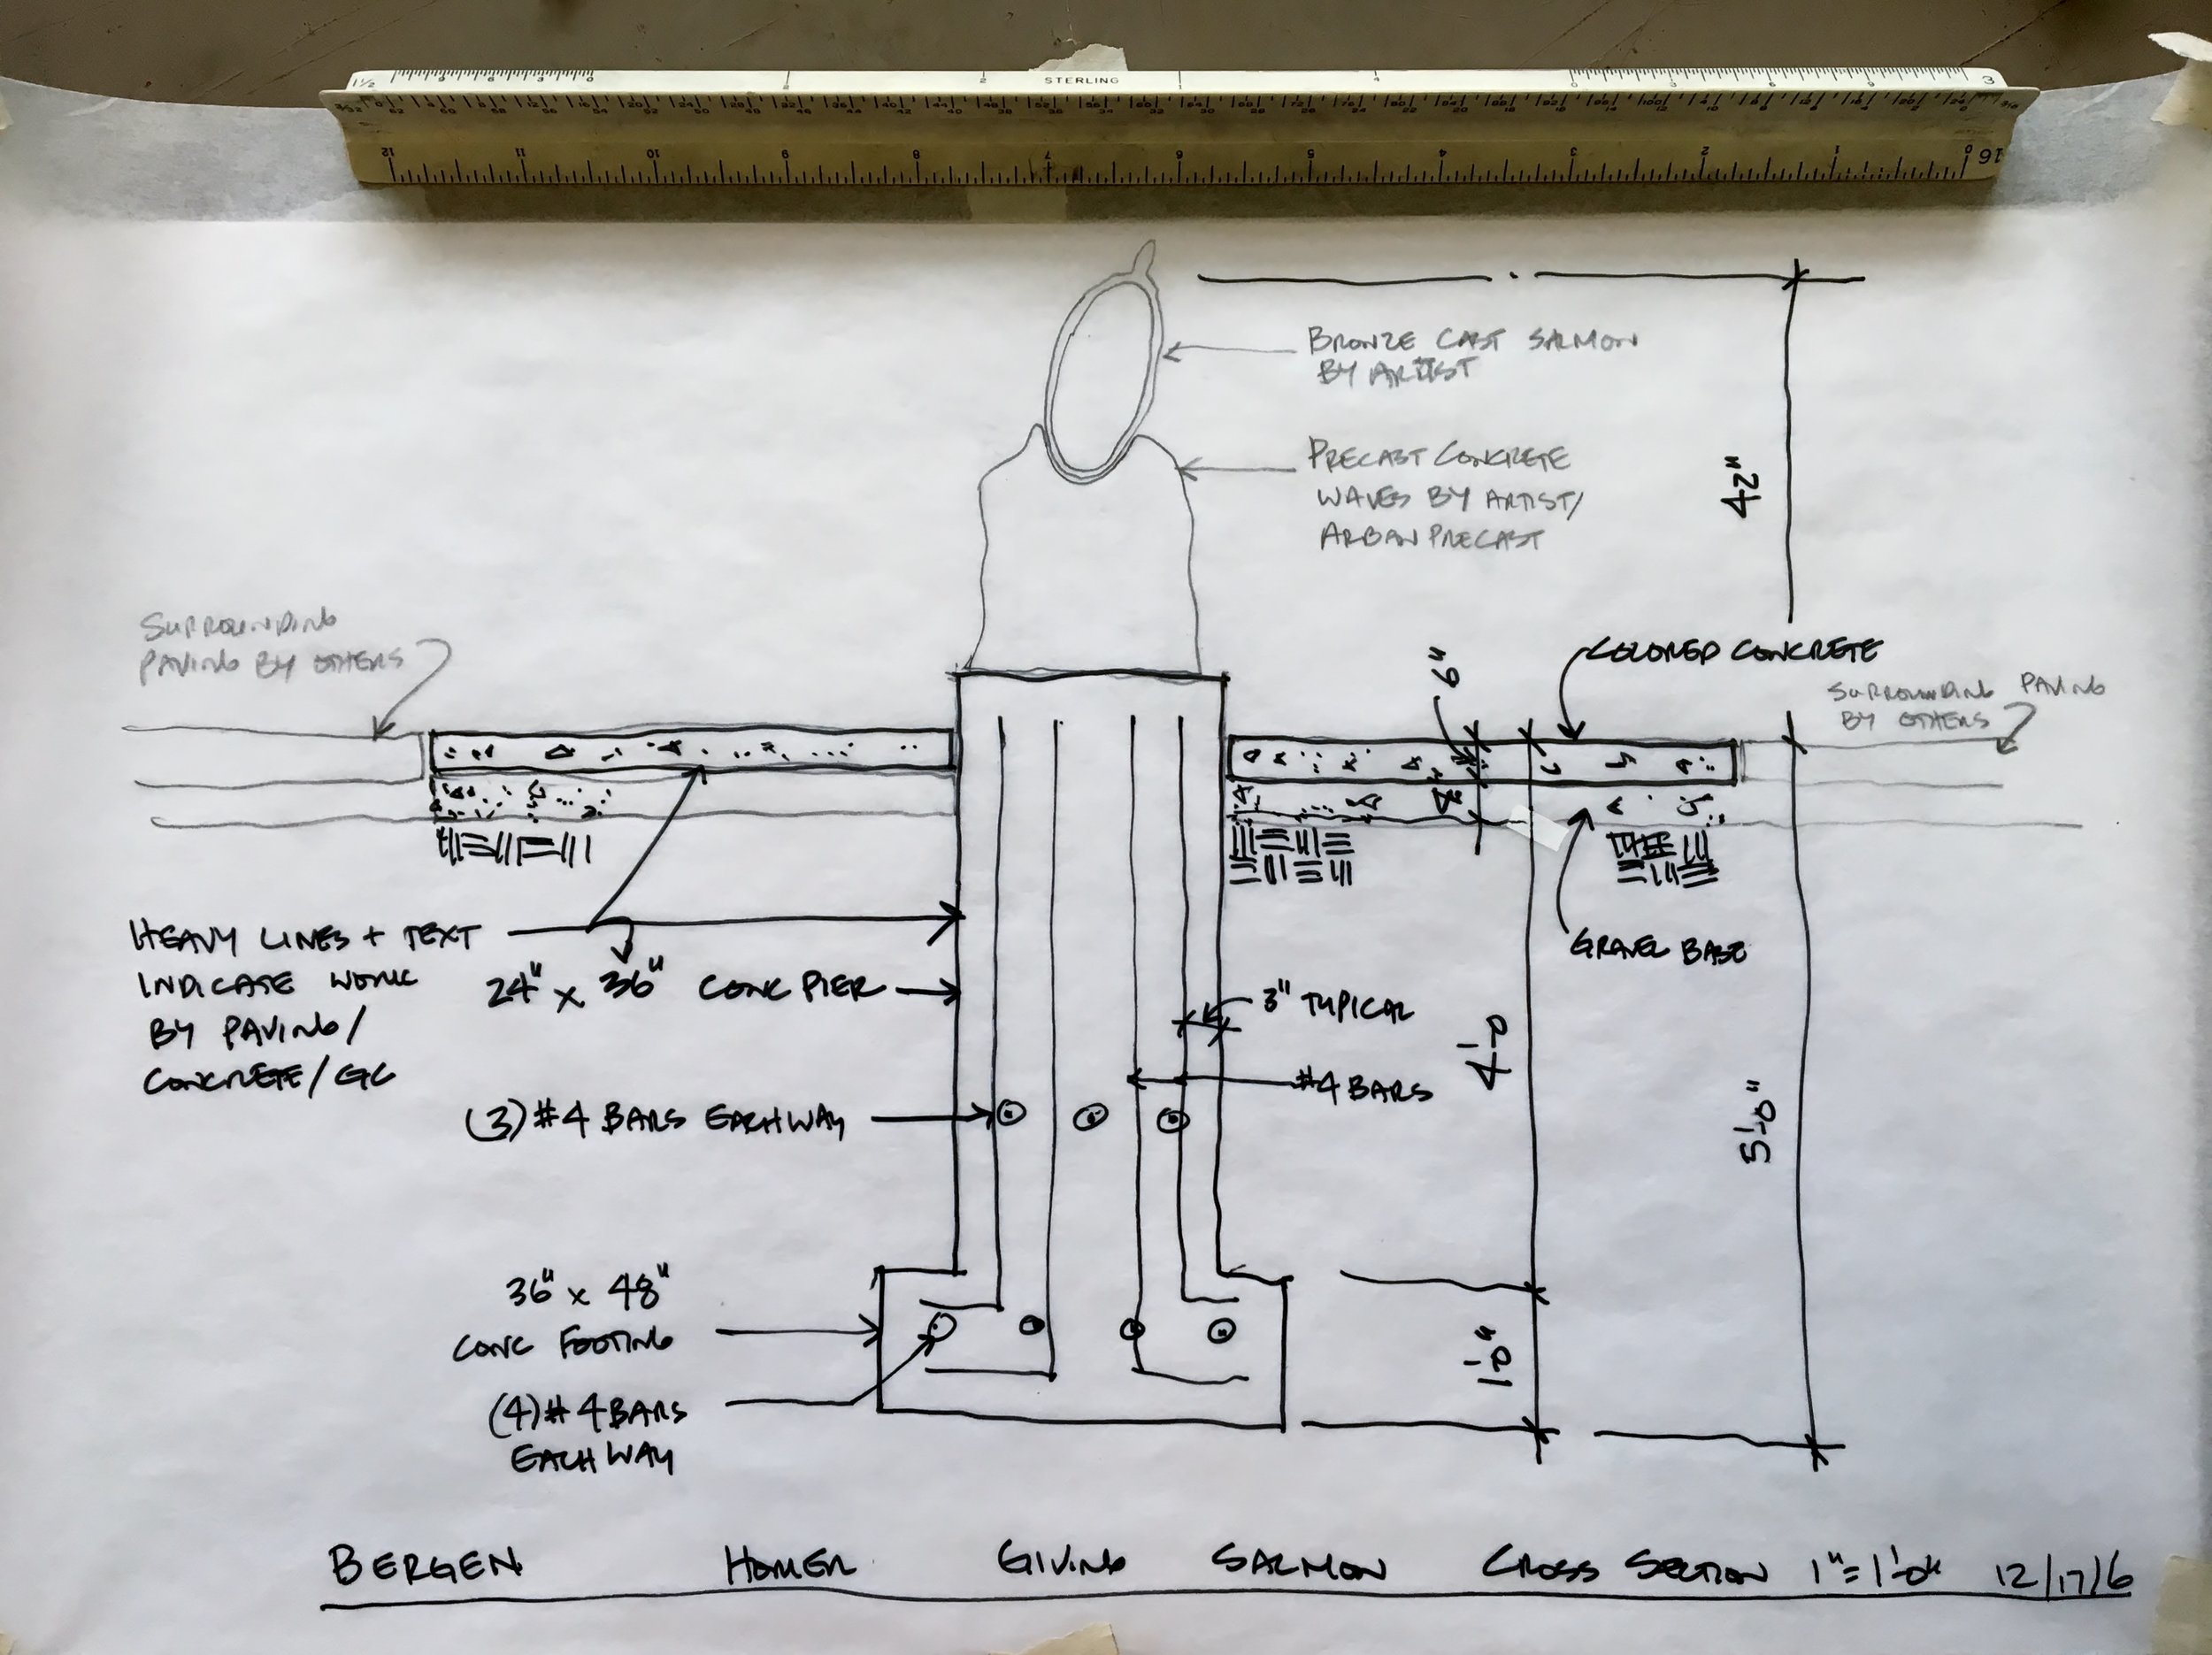 1½
STERLING
3
12 11 10 9 8 7 6 5 4 3 2 1 0
16
BRONZE CAST SALMON
BY ARTIST
PRECAST CONCRETE
WAVES BY ARTIST/
ARBAN PRECAST
42"
SURROUNDING
PAVING BY OTHERS
6"
COLORED CONCRETE
SURROUNDING PAVING
BY OTHERS
HEAVY LINES + TEXT
INDICATE WORK
BY PAVING/
CONCRETE/GC
24" x 36" CONC PIER
GRAVEL BASE
3" TYPICAL
4'-0
#4 BARS
5'-0"
(3) #4 BARS EACH WAY
36" x 48"
CONC FOOTING
1'-0"
(4) #4 BARS
EACH WAY
BERGEN HOMER GIVING SALMON CROSS SECTION 1"=1'-0" 12/17/6